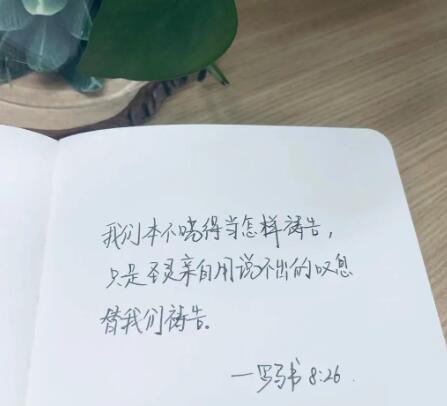 我们本不晓得当怎样祷告，
只是圣灵亲自用说不出的叹息
替我们祷告。
—罗马书 8:26.